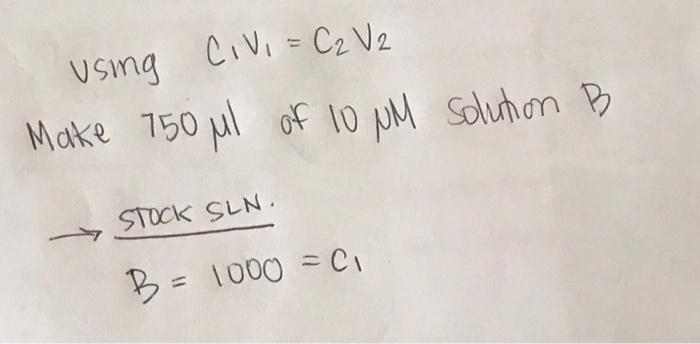 Using C₁V₁ = C₂V₂
Make 750 µl of 10 µM Solution B
→ STOCK SLN.
B = 1000 = C₁